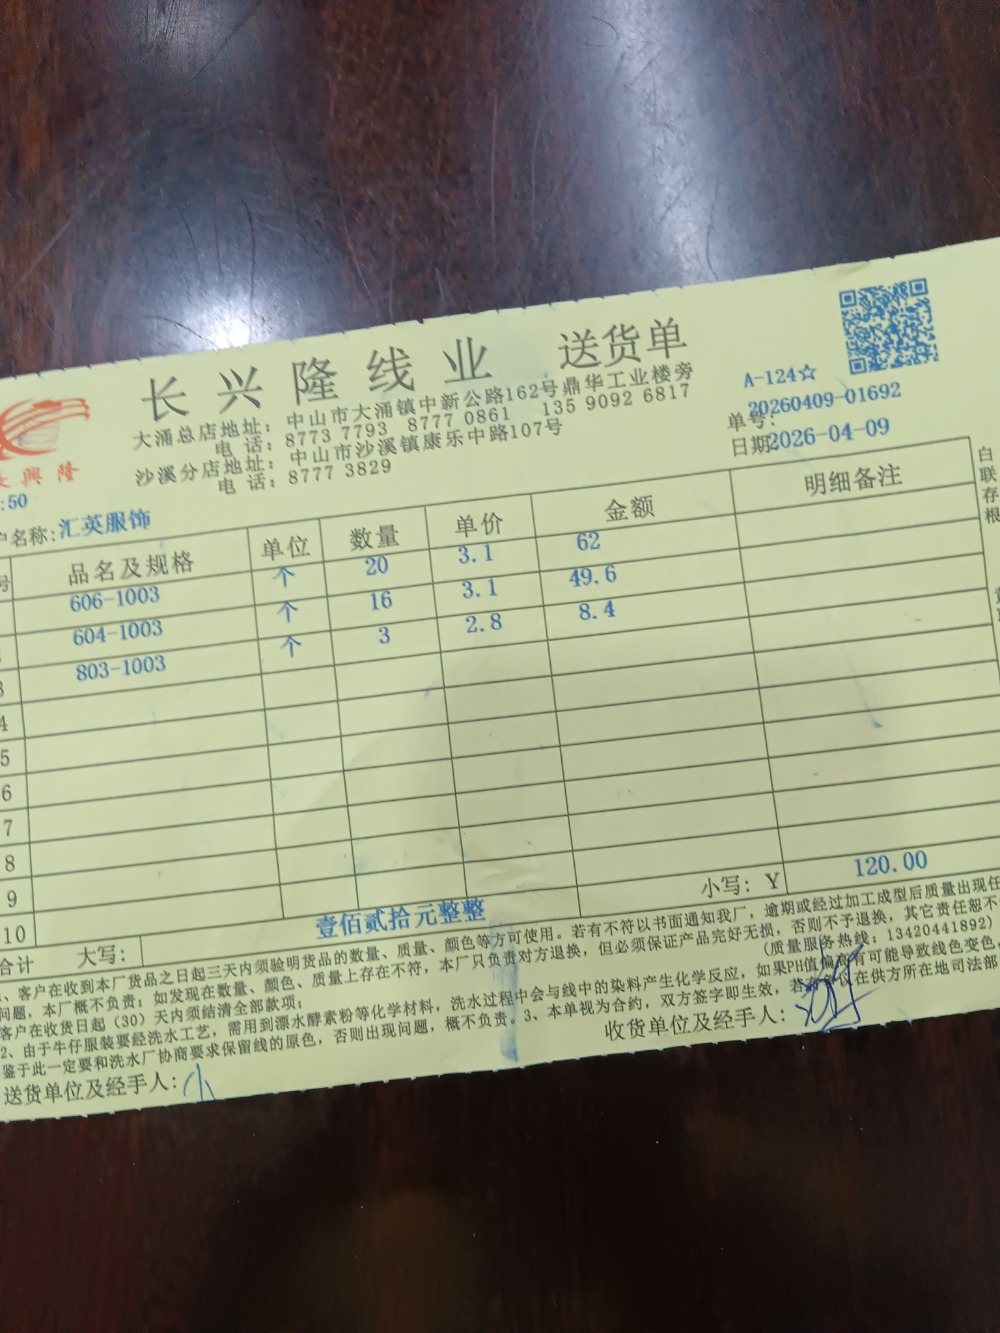 长兴隆线业 送货单
大涌总店地址：中山市大涌镇中新公路162号鼎华工业楼旁
电 话：8773 7793 8777 0861 135 9092 6817
沙溪分店地址：中山市沙溪镇康乐中路107号
电 话：8777 3829
興隆
A-124☆
单号：20260409-01692
日期2026-04-09
:50
户名称:汇英服饰
号 品名及规格 单位 数量 单价 金额 明细备注
606-1003 个 20 3.1 62
604-1003 个 16 3.1 49.6
3 803-1003 个 3 2.8 8.4
4
5
6
7
8
9
10
白联存根
合计 大写： 壹佰贰拾元整整 小写：Y 120.00
、客户在收到本厂货品之日起三天内须验明货品的数量、质量、颜色等方可使用。若有不符以书面通知我厂，逾期或经过加工成型后质量出现任
问题，本厂概不负责；如发现在数量、颜色、质量上存在不符，本厂只负责对方退换，但必须保证产品完好无损，否则不予退换，其它责任恕不
客户在收货日起（30）天内须结清全部款项； （质量服务热线：13420441892）
2、由于牛仔服装要经洗水工艺，需用到漂水酵素粉等化学材料，洗水过程中会与线中的染料产生化学反应，如果PH值偏高有可能导致线色变色，
鉴于此一定要和洗水厂协商要求保留线的原色，否则出现问题，概不负责。3、本单视为合约，双方签字即生效，若 议在供方所在地司法部
送货单位及经手人：小 收货单位及经手人：